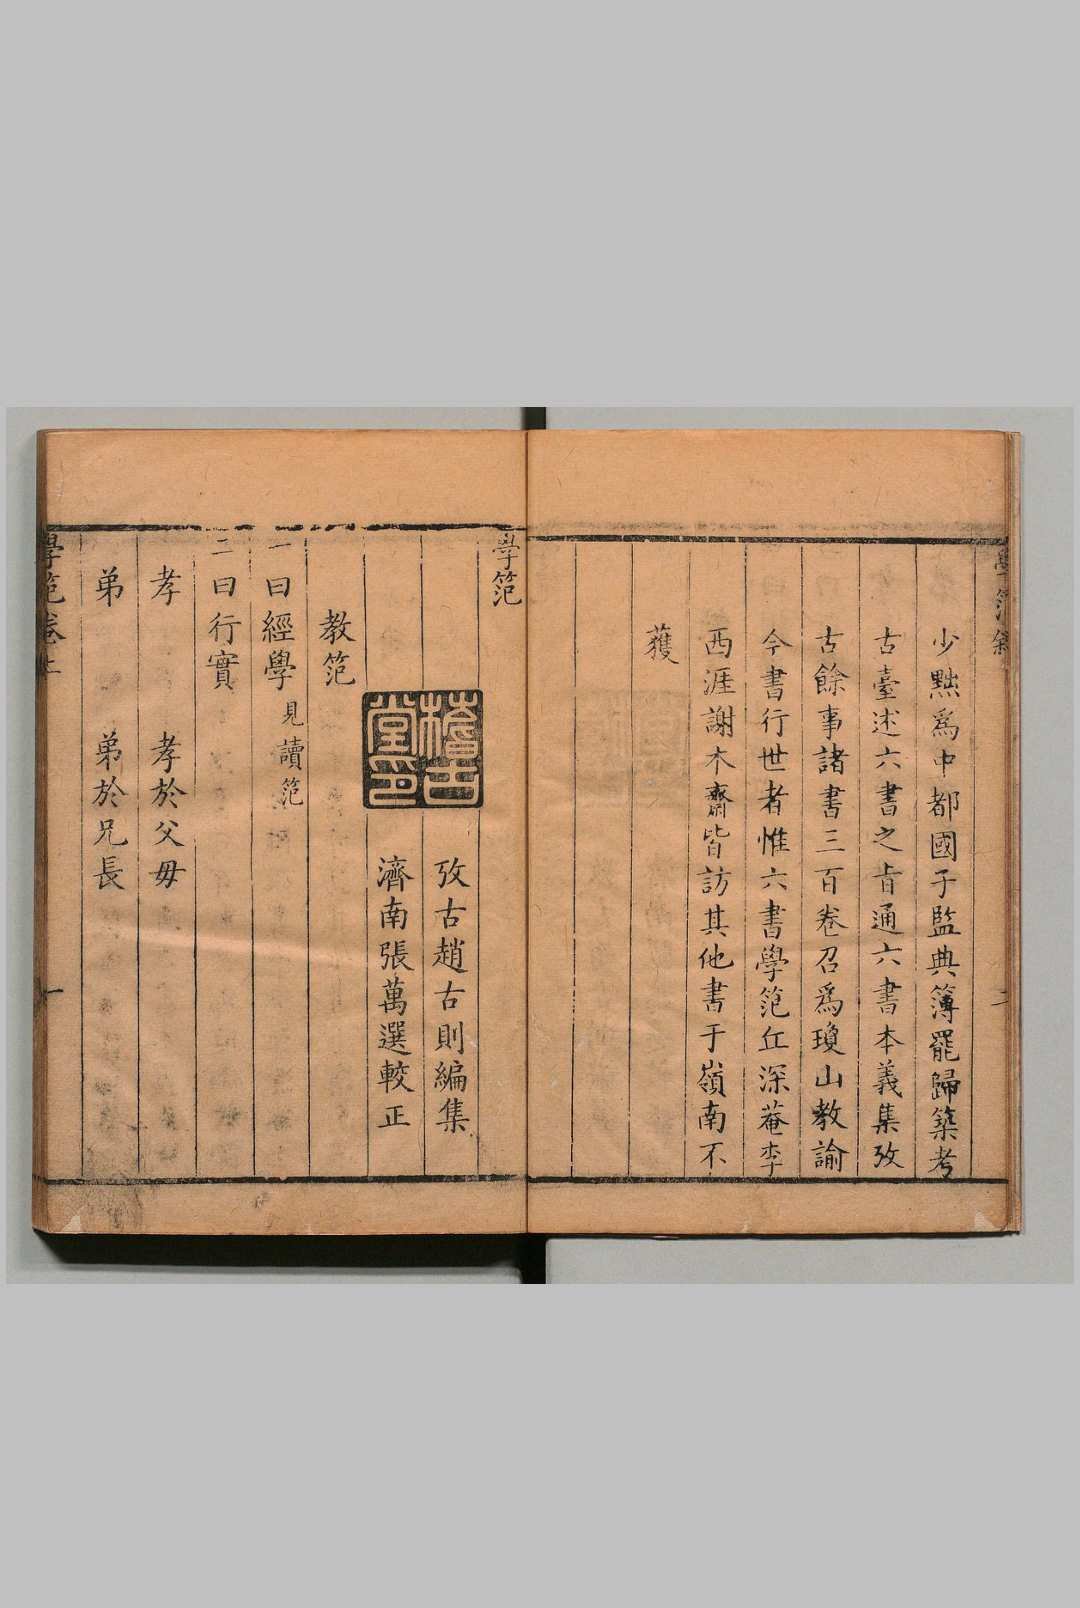 少黜爲中都國子監典簿罷歸築考
古臺述六書之㫖通六書本義集攷
古餘事諸書三百卷召爲瓊山教諭
今書行世者惟六書學範丘深菴李
西涯謝木齋皆訪其他書于嶺南不
獲
二
學範
攷古趙古則編集
濟南張萬選較正
稽古堂印
教範
一曰經學 見讀範
二曰行實
孝 孝於父母
弟 弟於兄長
學範卷上
一